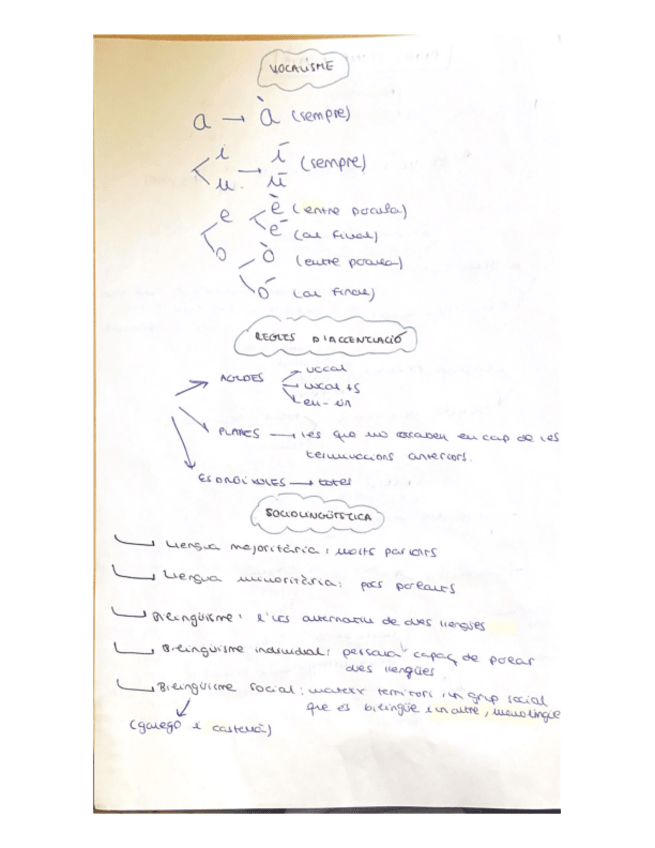 VOCALISME
a → à (sempre)
i → í (sempre)
u → ú
e è (entre paraula)
é (al final)
o ò (entre paraula)
ó (al final)
REGLES D'ACCENTUACIÓ
AGUDES vocal
vocal +s
en - in
PLANES → les que no acaben en cap de les
terminacions anteriors.
ESDRÚIXOLES → totes
SOCIOLINGÜÍSTICA
Llengua majoritària: molts parlants
Llengua minoritària: pocs parlants
Bilingüisme: l'ús alternatiu de dues llengües
Bilingüisme individual: persona capaç de parlar
dues llengües
Bilingüisme social: mateix territori un grup social
que és bilingüe i un altre, monolingüe
(galego i castellà)